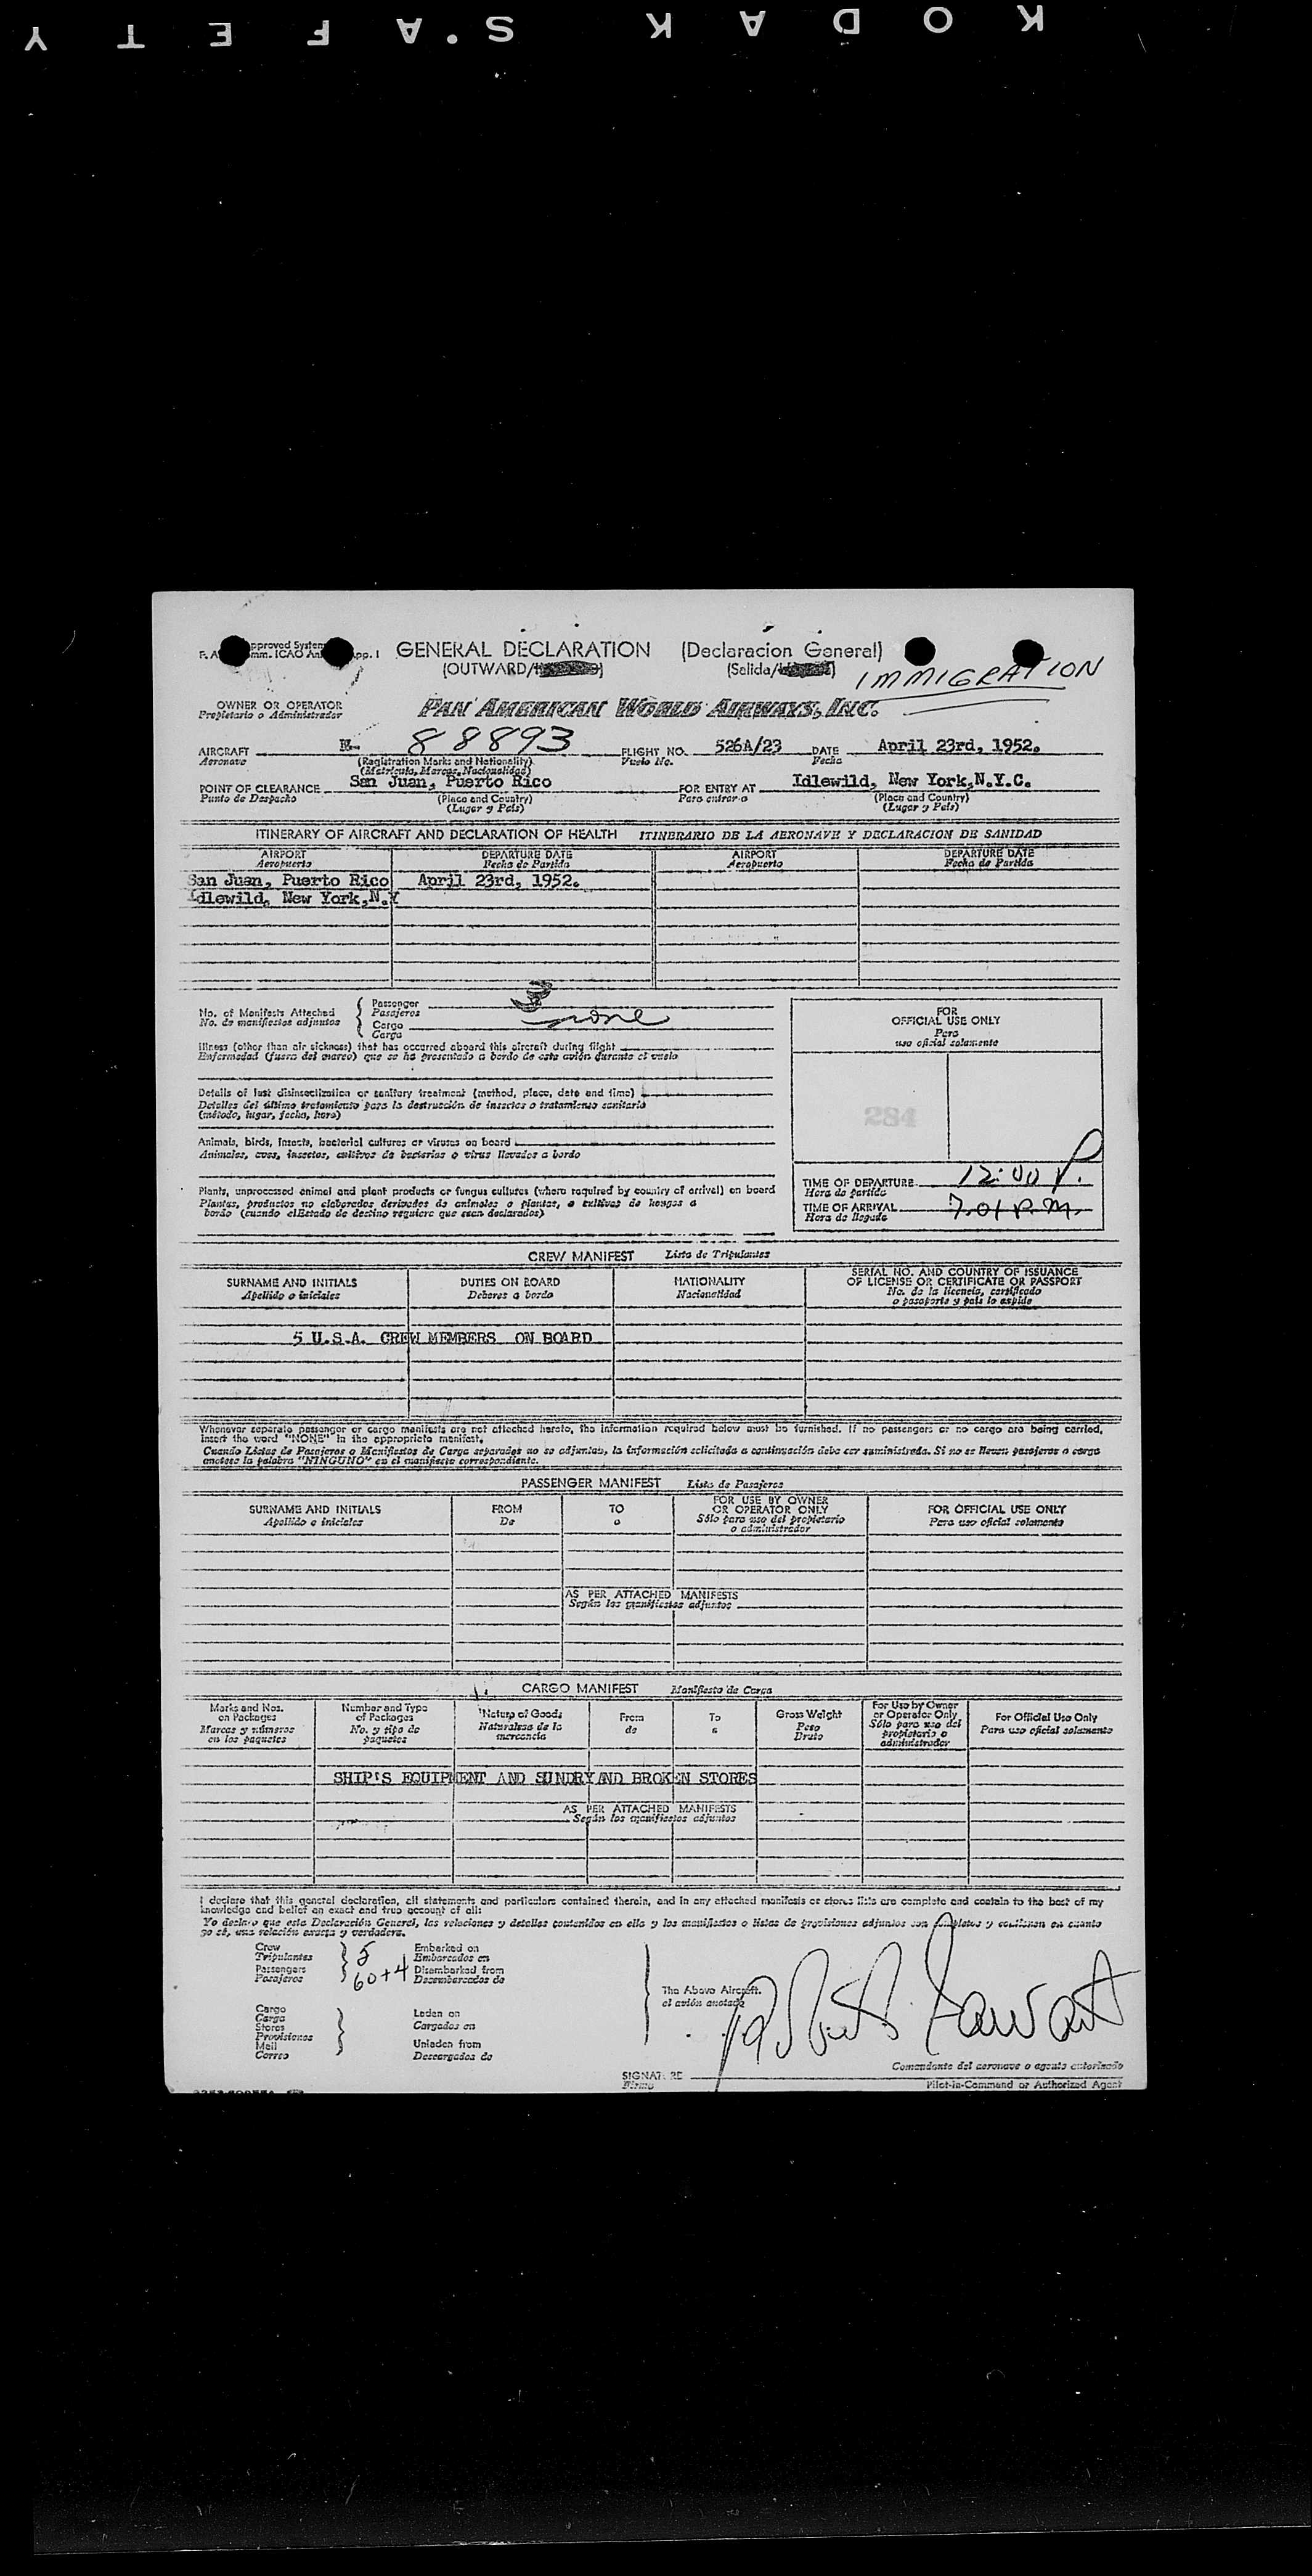 KODAK S.AFETY
GENERAL DECLARATION (Declaracion General)
(OUTWARD/ (Salida/
IMMIGRATION
OWNER OR OPERATOR
Propietario o Administrador
PAN AMERICAN WORLD AIRWAYS, INC.
AIRCRAFT N- 88893 FLIGHT NO. 526A/23 DATE April 23rd, 1952.
Aeronave (Registration Marks and Nationality) Vuelo No. Fecha
(Matricula, Marcas, Nacionalidad)
POINT OF CLEARANCE San Juan, Puerto Rico FOR ENTRY AT Idlewild, New York,N.Y.C.
Punto de Despacho (Place and Country) Para entrar a (Place and Country)
(Lugar y País) (Lugar y País)
ITINERARY OF AIRCRAFT AND DECLARATION OF HEALTH ITINERARIO DE LA AERONAVE Y DECLARACION DE SANIDAD
AIRPORT DEPARTURE DATE AIRPORT DEPARTURE DATE
Aeropuerto Fecha de Partida Aeropuerto Fecha de Partida
San Juan, Puerto Rico April 23rd, 1952.
Idlewild, New York,N.Y
No. of Manifests Attached Passenger
No. de manifiestos adjuntos Pasajeros
Cargo none
Carga
Illness (other than air sickness) that has occurred aboard this aircraft during flight
Enfermedad (fuera del mareo) que se ha presentado a bordo de este avión durante el vuelo
Details of last disinsectization or sanitary treatment (method, place, date and time)
Detalles del último tratamiento para la destrucción de insectos o tratamiento sanitario
(método, lugar, fecha, hora)
Animals, birds, insects, bacterial cultures or viruses on board
Animales, aves, insectos, cultivos de bacterias o virus llevados a bordo
Plants, unprocessed animal and plant products or fungus cultures (where required by country of arrival) on board
Plantas, productos no elaborados derivados de animales o plantas, o cultivos de hongos a
bordo (cuando el Estado de destino requiere que sean declarados)
FOR
OFFICIAL USE ONLY
Para
uso oficial solamente
284
TIME OF DEPARTURE 12:00 P.
Hora de partida
TIME OF ARRIVAL 7:01 P.M.
Hora de llegada
CREW MANIFEST Lista de Tripulantes
SURNAME AND INITIALS DUTIES ON BOARD NATIONALITY SERIAL NO. AND COUNTRY OF ISSUANCE
OF LICENSE OR CERTIFICATE OR PASSPORT
Apellido e iniciales Deberes a bordo Nacionalidad No. de la licencia, certificado
o pasaporte y país lo expide
5 U.S.A. CREW MEMBERS ON BOARD
Whenever separate passenger or cargo manifests are not attached hereto, the information required below must be furnished. If no passengers or no cargo are being carried,
insert the word "NONE" in the appropriate manifest.
Cuando Listas de Pasajeros o Manifiestos de Carga separados no se adjuntan, la información solicitada a continuación debe ser suministrada. Si no se llevan pasajeros o carga
anotese la palabra "NINGUNO" en el manifiesto correspondiente.
PASSENGER MANIFEST Lista de Pasajeros
SURNAME AND INITIALS FROM TO FOR USE BY OWNER
OR OPERATOR ONLY FOR OFFICIAL USE ONLY
Apellido e iniciales De a Sólo para uso del propietario
o administrador Para uso oficial solamente
AS PER ATTACHED MANIFESTS
Según los manifiestos adjuntos
CARGO MANIFEST Manifiesto de Carga
Marks and Nos. Number and Type Nature of Goods From To Gross Weight For Use by Owner For Official Use Only
on Packages of Packages or Operator Only
Marcas y números No. y tipo de Naturaleza de la de a Peso Sólo para uso del Para uso oficial solamente
en los paquetes paquetes mercancia Bruto propietario o
administrador
SHIP'S EQUIPMENT AND SUNDRY AND BROKEN STORES
AS PER ATTACHED MANIFESTS
Según los manifiestos adjuntos
I declare that this general declaration, all statements and particulars contained therein, and in any attached manifests or stores lists are complete and contain to the best of my
knowledge and belief an exact and true account of all:
Yo declaro que esta Declaración General, las relaciones y detalles contenidos en ella y los manifiestos o listas de provisiones adjuntos son completos y contienen en cuanto
yo sé, una relación exacta y verdadera.
Crew 5 Embarked on
Tripulantes Embarcados en
Passengers 60+4 Disembarked from
Pasajeros Desembarcados de
The Above Aircraft.
el avión anotado
Cargo Laden on
Carga Cargados en
Stores
Provisiones
Mail Unladen from
Correo Descargados de
Comandante del aeronave o agente autorizado
SIGNATURE
Firma
Pilot-in-Command or Authorized Agent